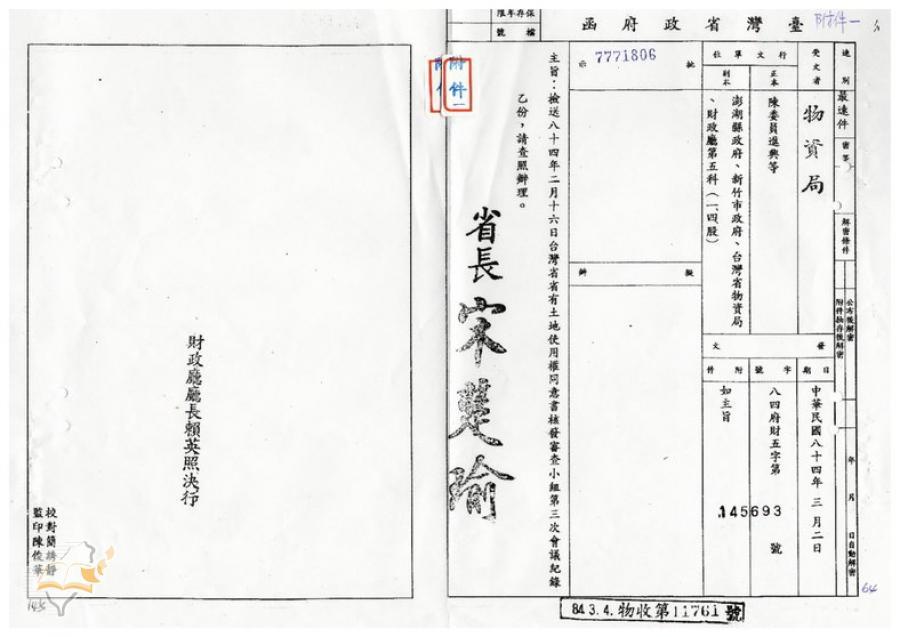 臺灣省政府函
附件一
保存年限
檔號
速別
最速件
密等
解密條件
公布後解密
附件抽存後解密
年 月 日自動解密
受文者
物資局
行文單位
正本
陳委員進興等
副本
澎湖縣政府、新竹市政府、台灣省物資局
、財政廳第五科(一、四股)
發文
日期
中華民國八十四年三月二日
字號
八四府財五字第
145693
號
附件
如主旨
批示
7771806
擬辦
主旨：檢送八十四年二月十六日台灣省省有土地使用權同意書核發審查小組第三次會議紀錄
乙份，請查照辦理。
附件一
省長 宋楚瑜
財政廳廳長賴英照決行
校對簡
監印陳俊華
84.3.4.物收第11761號
64